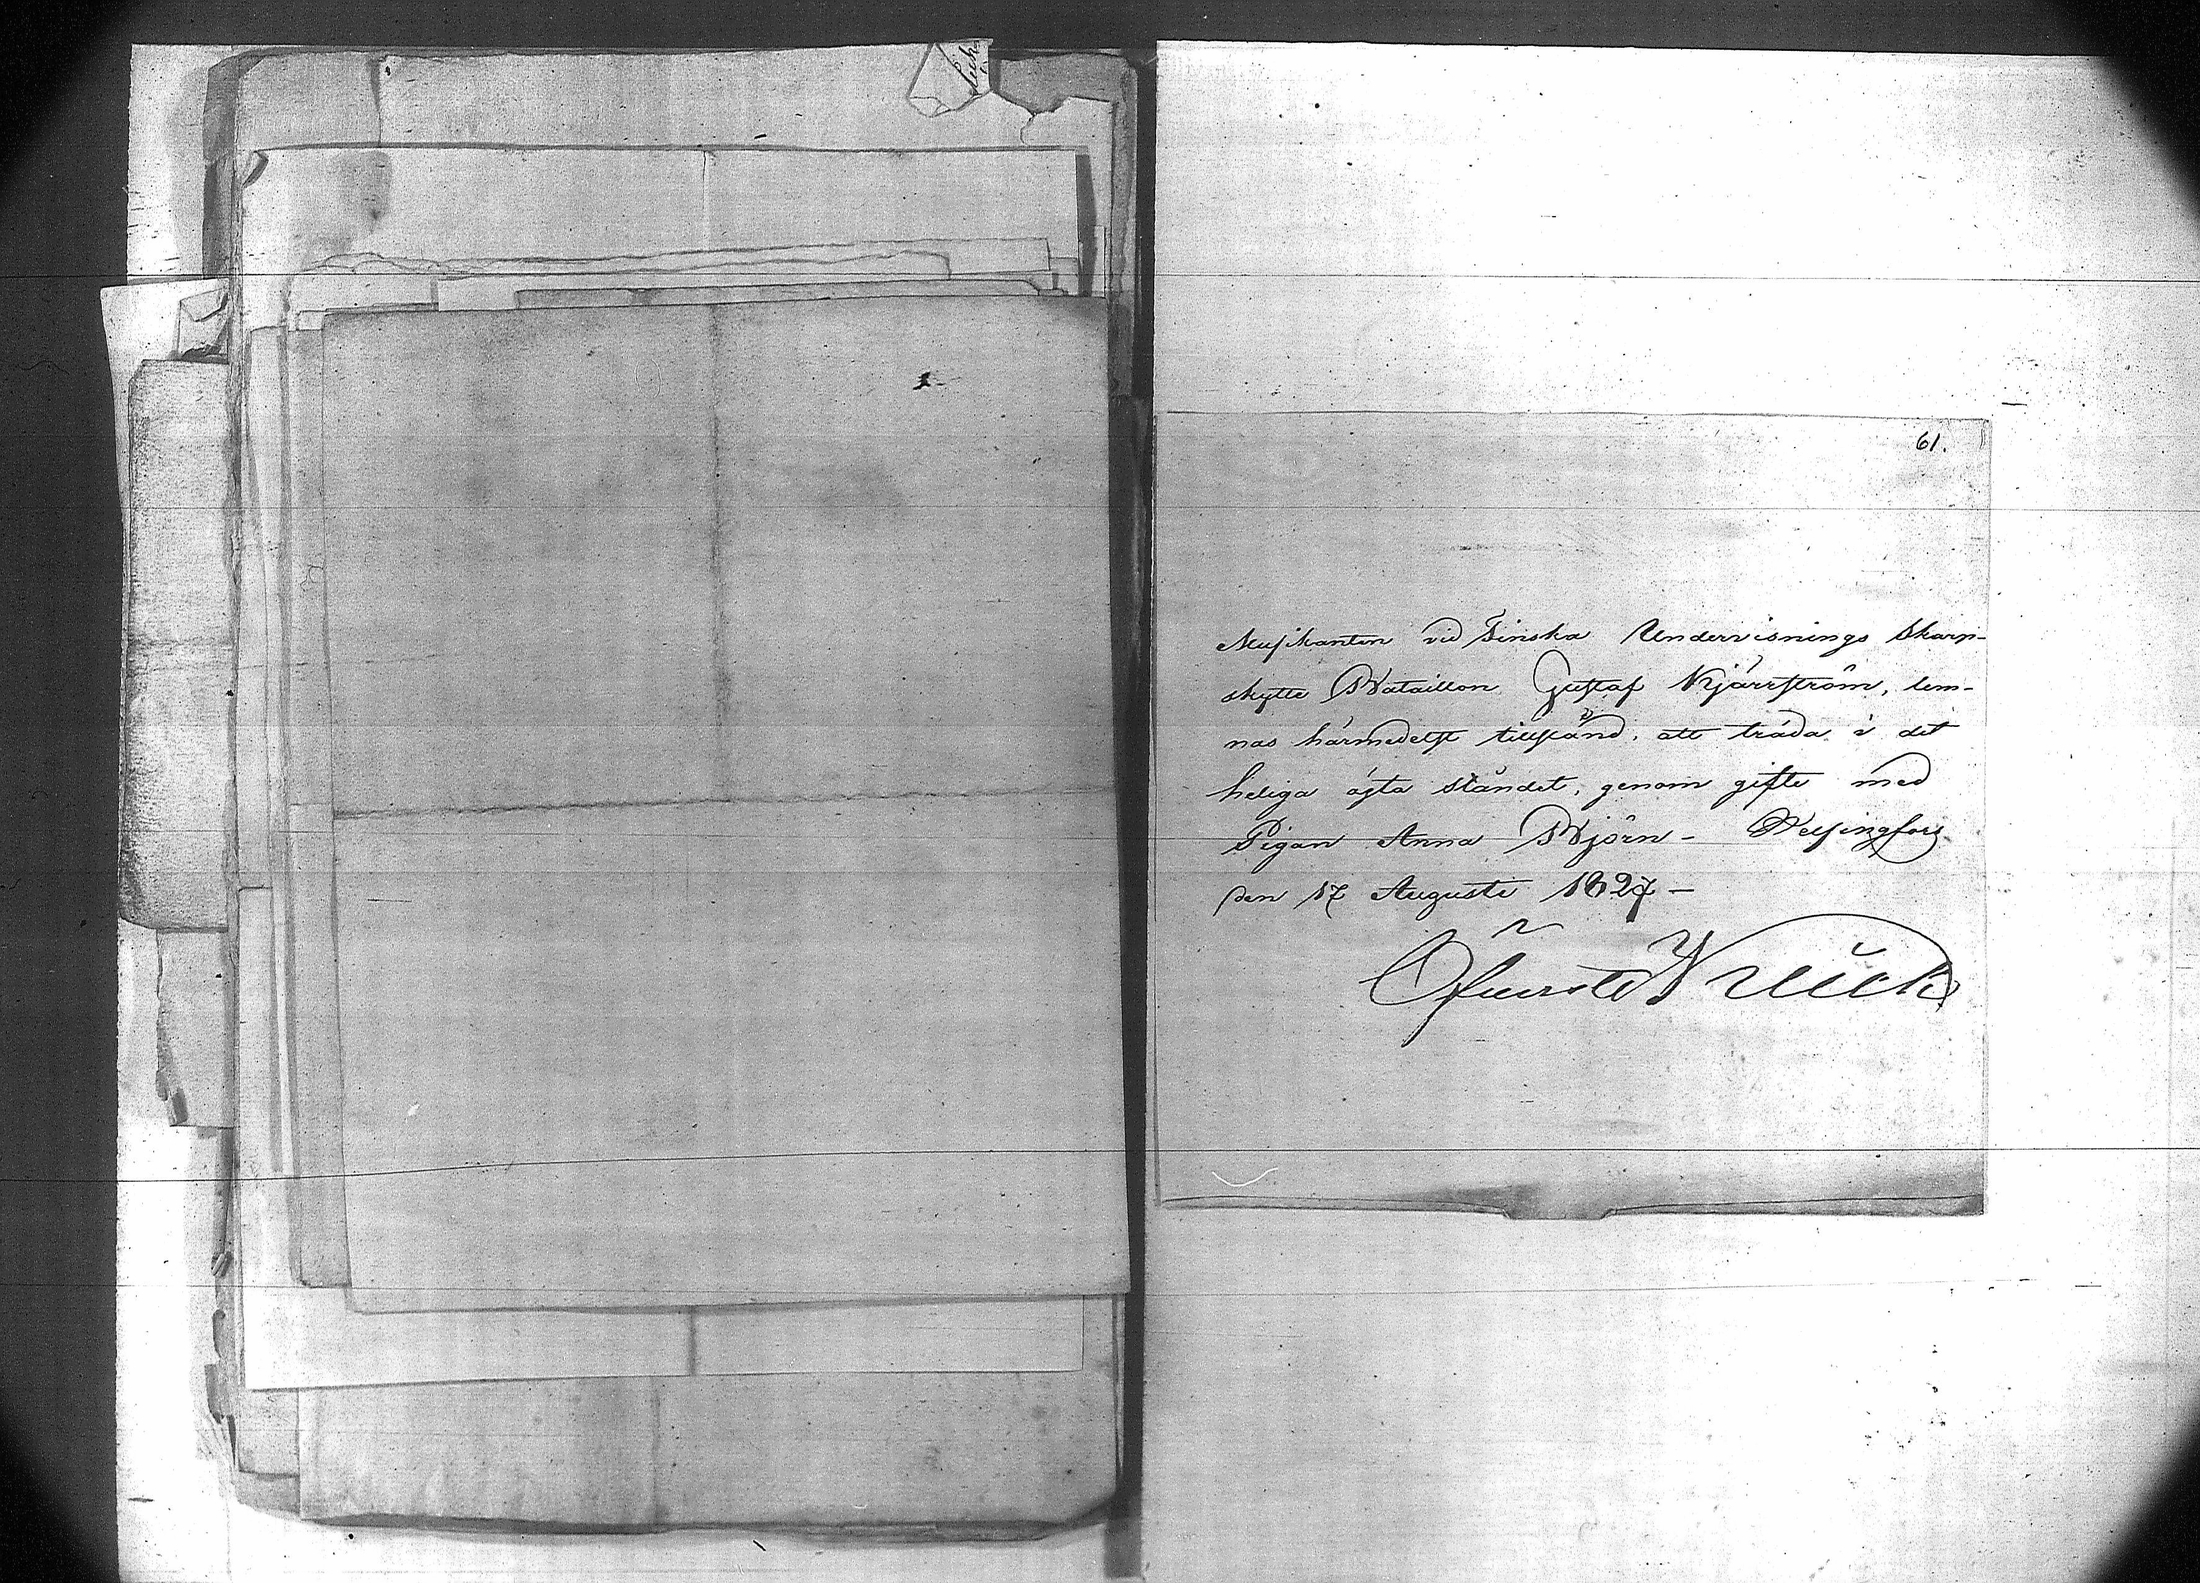 61.
Musikanten vid Finska Undervisnings Skarp-
skytte Bataillon Gustaf Kjärrström, lem-
nas härmedelst tillstånd, att träda i det
heliga ägta ståndet, genom gifte med
Pigan Anna Björn – Helsingfors
den 17 Augusti 1827 –
Öfverste